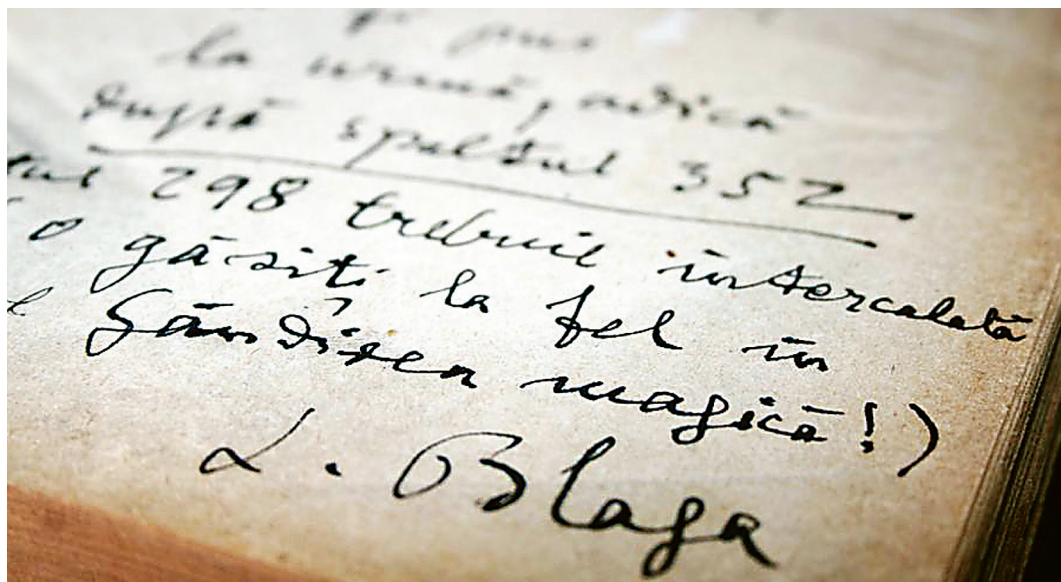 și pus
la urmă, adică
după spaltul 352
298 trebuie intercalată
o găsiți la fel în
Gândirea magică!)
L. Blaga